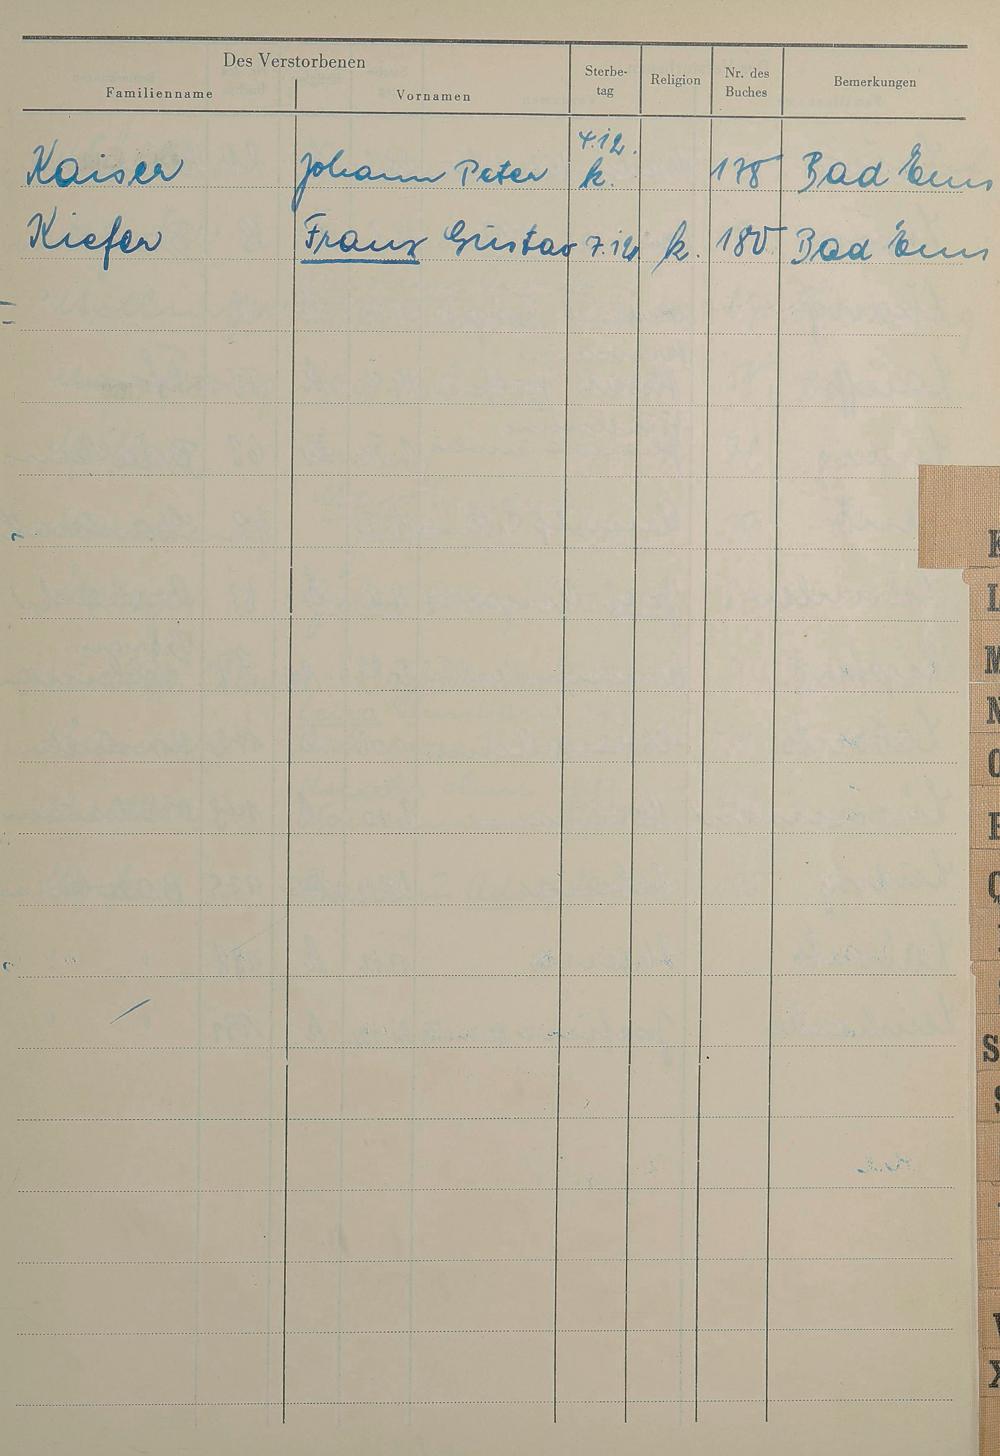 Des Verstorbenen
Familienname Vornamen Sterbe-tag Religion Nr. des Buches Bemerkungen
4.12.
Kaiser Johann Peter k. 178 Bad Ems
Kiefer Franz Gustav 7.12. k. 180 Bad Ems
K
L
M
N
O
P
Q
S
S
V
X